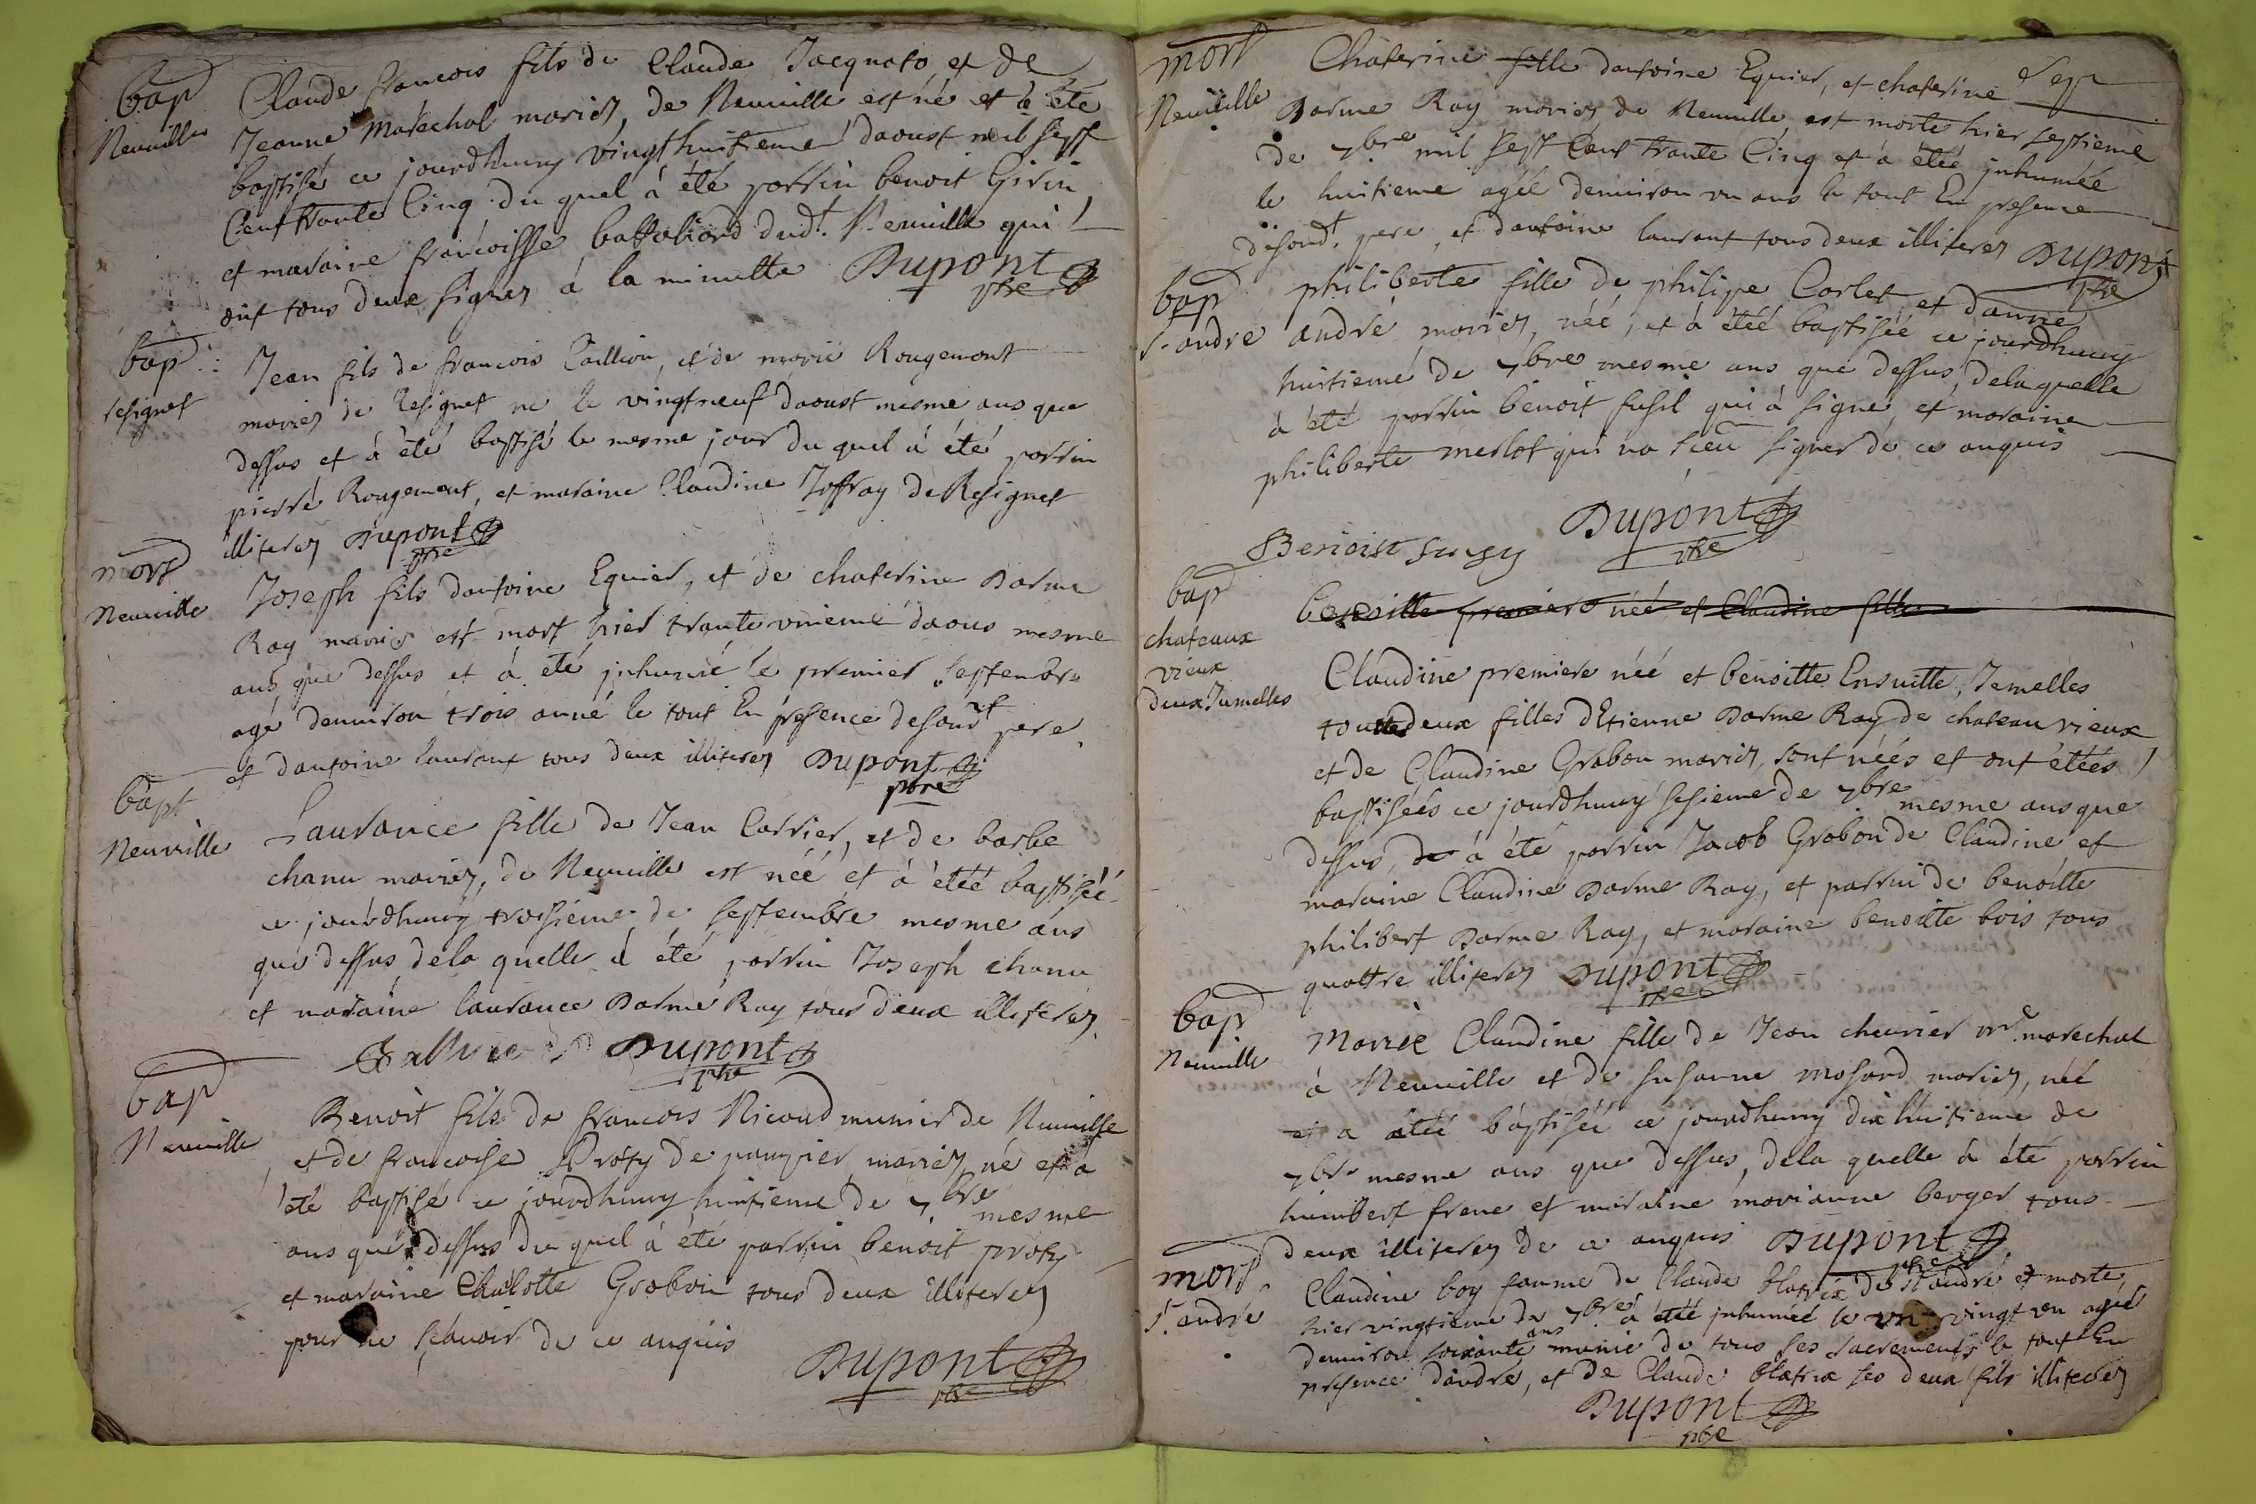 bap
Neuuille
Claude francois fils de Claude Jacquato et de
Jeanne Maréchal mariez, de Neuuille est né et à été
baptisé ce jourdhuuy vingthuitieme daoust mil sept
Cent trante Cinq du quel à été parrin benoit Girin
et maraine francoisse battaliard dudt. Neuuille qui
ont tous deux signez à la minutte Dupont
ptre
bap
resignet
Jean fils de francois Caillion, et de marie Rougemont
mariez de Resignet né le vingtneuf daoust mesme ans que
dessus et à été baptisé le mesme jour du quel à été parrin
pierre Rougemont, et maraine Claudine Joffray de Resignet
illiterez Dupont
ptre
mort
Neuuille
Joseph fils dantoine Equier, et de chaterine Darme
Ray mariez est mort hier trante vnieme daous mesme
ans que dessus et à été jnhumé le premier septembre
agé denuiron trois anné le tout En presence desondt pere
et dantoine laurant tous deux illiterez Dupont
ptre
bapt
Neuville
Laurance fille de Jean Carrier, et de barbe
chanu mariez, de Neuuille est néé et à étéé baptiséé
ce jourdhuuy troisieme de septembre mesme ans
que dessus, dela quelle à été parrin Joseph chanu
et maraine laurance Darme Ray tous deux illiterez
Dupont
ptre
bap
Neuuille
Benoit fils de francois Nicoud munier de Neuuille
et de francoise Proty de pampier mariez né et a
été baptisé ce jourdhuuy huitieme de 7bre mesme
ans que dessus du quel à été parrin benoit proty
et maraine Chalotte Grobon tous deux illiterez
pour ne scavoir de ce anquis
Dupont
ptre
mort
Neuuille
Chaterine fille dantoine Equier, et chaterine
Darme Ray mariez de Neuuille est morte hier septieme
de 7bre mil sept Cent trante Cinq et à étéé jnhumée
le huitieme agéé denuiron vn ans le tout En presence
desondt. pere, et dantoine laurant tous deux illiterez Dupont
ptre
bap
St. andré
philiberte fille de philipe Carlet et danne
andré mariez, néé, et à étéé baptiséé ce jourdhuuy
huitieme de 7bre mesme ans que dessus, dela quelle
à été parrin benoit fusil qui à signé, et maraine
philiberte merlot qui na sceu signer de ce anquis
Benoist Dupont
ptre
bap
chateaux
vieux
deux Jumelles
benoitte premiere néé et Claudine fille
Claudine premiere néé et benoitte Ensuitte, Jemelles
toutes deux filles dEtienne Darme Ray de chateau vieux
et de Claudine Grabou mariez, sont néés et ont étéés
baptiséés ce jourdhuuy sesieme de 7bre mesme ans que
dessus, de à été parrin Jacob Grobon de Claudine et
maraine Claudine Darme Ray, et parrin de benoitte
philibert Darme Ray, et maraine benoitte bois tous
quattre illiterez Dupont
ptre
bap
Neuuille
Mariee Claudine fille de Jean cheurier mre. marechal
à Neuuille et de susanne mosard mariez, néé
et a étéé baptiséé ce jourdhuuy dix huitieme de
7bre mesme ans que dessus, dela quelle à été parrin
humbert frene et maraine marianne berger tous
deux illiterez de ce anquis Dupont
ptre
mort
St. andré
Claudine boy famme de Claude blatrix de St andré et morte,
hier vingtieme de 7bre à étéé jnhuméé le vingt vn agéé
denuiron soixante ans munie de tous ses sacrements le tout En
presence dandré, et de Claude blatrix ses deux fils illiterez
Dupont
ptre